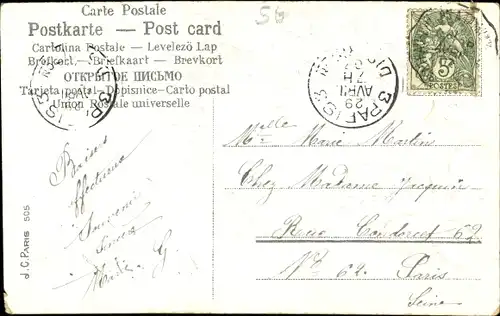 Carte Postale
Postkarte — Post card
Cartolina Postale — Levelező Lap
Brefkort — Briefkaart — Brevkort
ОТКРЫТОЕ ПИСЬМО
Tarjeta postal — Dopisnice — Carto postal
Union Postale universelle
3 PARIS
29
AVRIL
7H
POSTES
Melle Marie Martin
Chez Madame
Rue Condorcet 62
No 62. Paris
Seine
Baisers
affectueux
Souvenir
J.C. PARIS 505